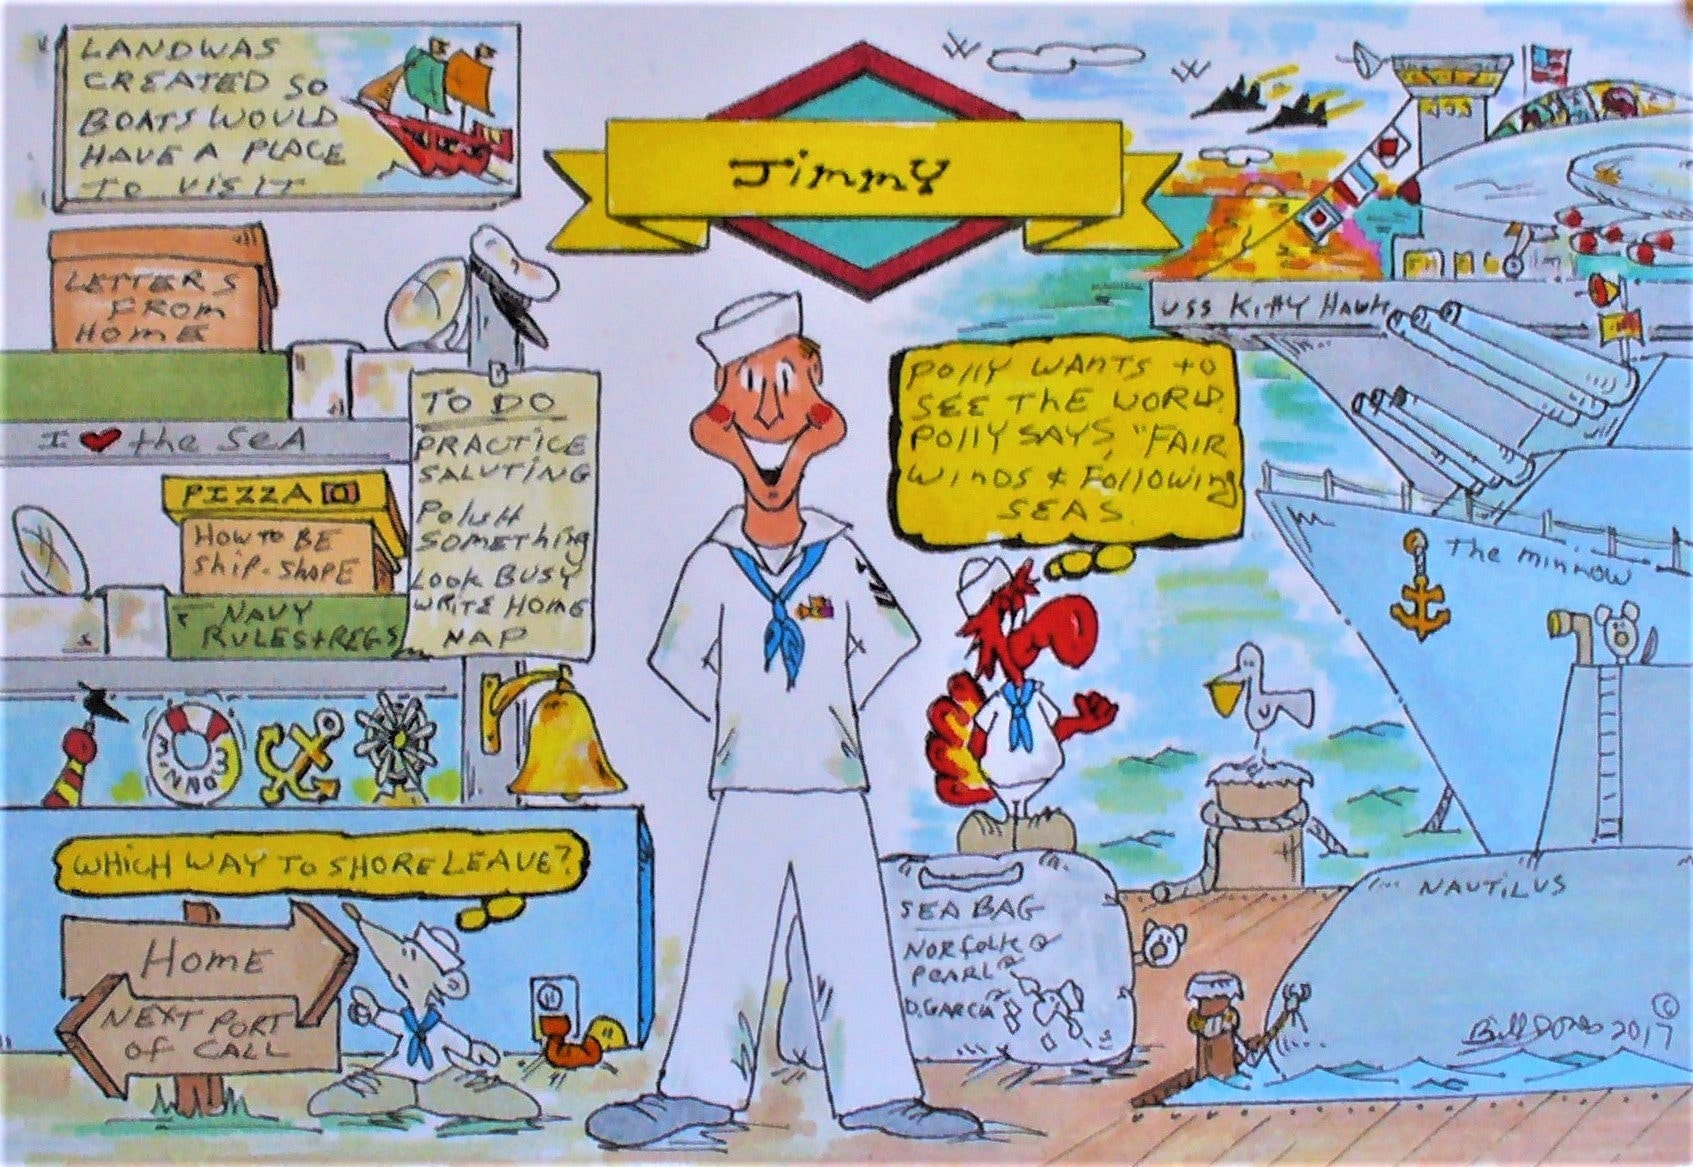 LAND WAS
CREATED SO
BOATS WOULD
HAVE A PLACE
TO VISIT
Jimmy
LETTERS
FROM
HOME
USS Kitty Hawk
TO DO
PRACTICE
SALUTING
POLISH
SOMETHING
LOOK BUSY
WRITE HOME
NAP
POLLY WANTS TO
SEE THE WORLD.
POLLY SAYS, "FAIR
WINDS & FOLLOWING
SEAS.
I ❤ the SEA
PIZZA
HOW TO BE
Ship-SHAPE
NAVY
RULES+REGS
The Minnow
MINNOW
WHICH WAY TO SHORE LEAVE?
HOME
NEXT PORT
OF CALL
SEA BAG
NORFOLK
PEARL
D.GARCIA
NAUTILUS
2017 ©